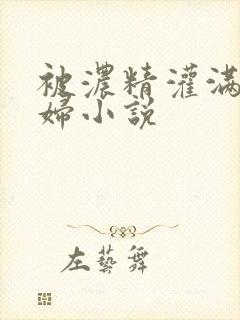 被濃精灌滿
婦小說
左藝舞